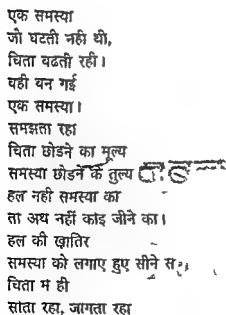 एक समस्या
जो घटती नही थी,
चिता बढती रही।
वही बन गई
एक समस्या।
समझता रहा
चिता छोडने का मूल्य
समस्या छोड़ने के तुल्य
हल नही समस्या का
ता अथ नहीं कोइ जीने का।
हल की ख़ातिर
समस्या को लगाए हुए सीने
चिता म ही
सोता रहा, जागता रहा